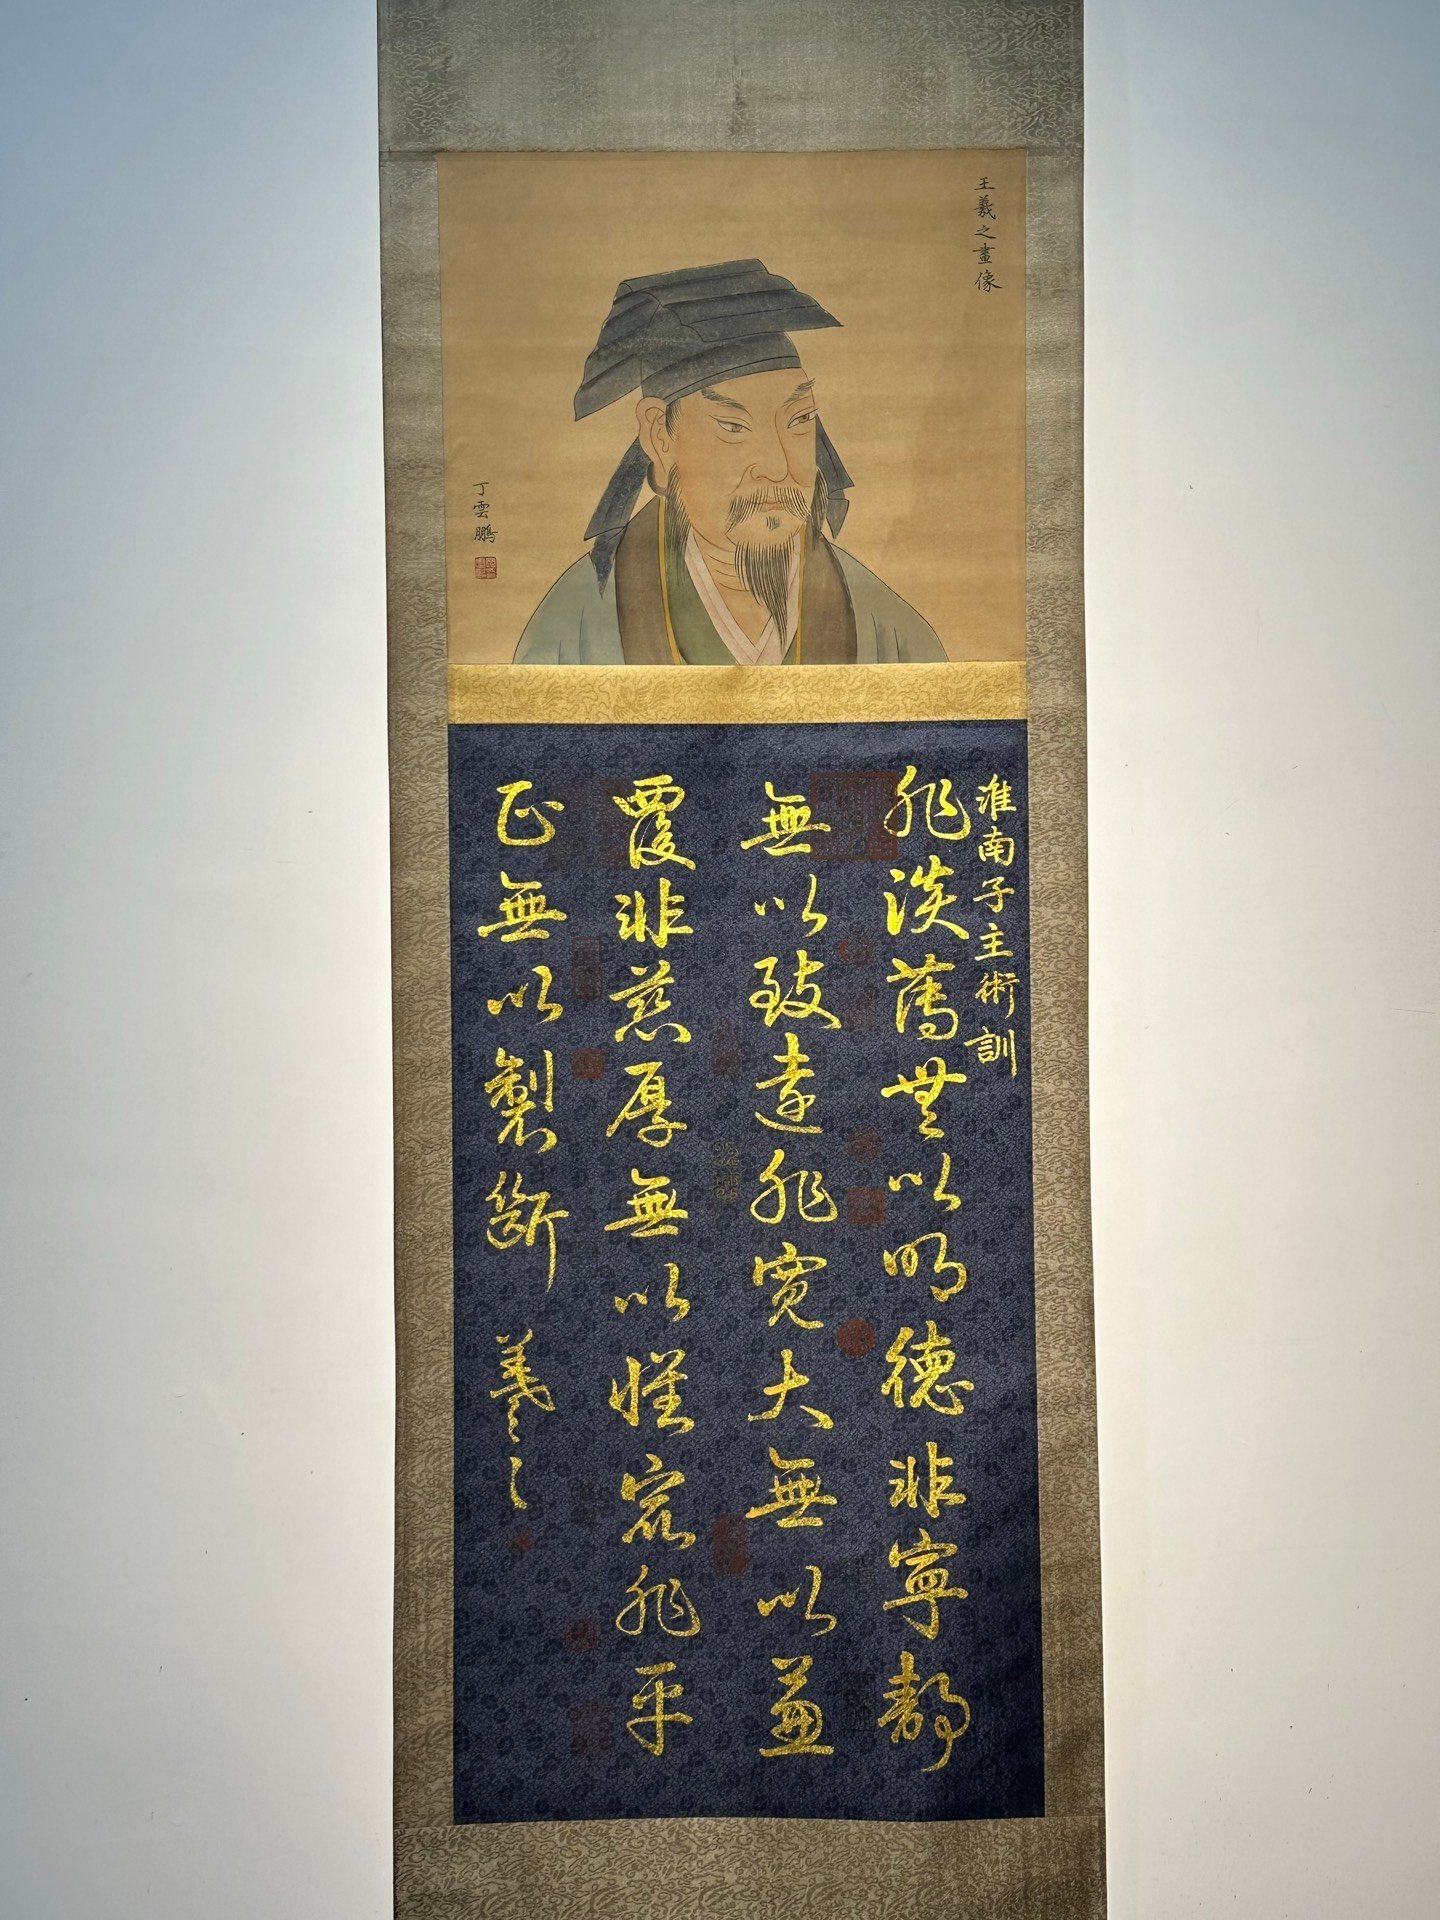 王羲之畫像
丁雲鵬
淮南子主術訓
非淡薄無以明德非寧靜
無以致遠非寬大無以兼
覆非慈厚無以懷眾非平
正無以製斷
羲之